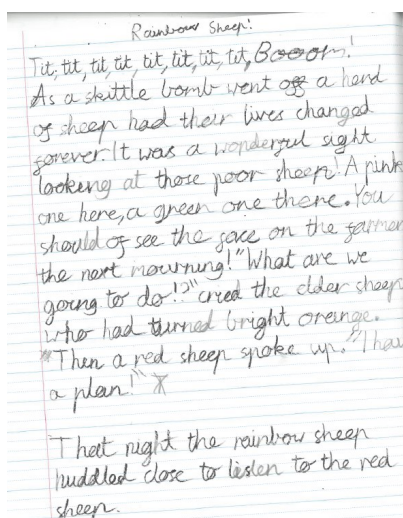 Rainbow Sheep!
Tit, tit, tit, tit, tit, tit, tit, tit, Booom!
As a skittle bomb went off a herd
of sheep had their lives changed
forever. It was a wonderful sight
looking at those poor sheep! A pink
one here, a green one there. You
should of see the face on the farmer
the next mourning! "What are we
going to do!?" cried the elder sheep
who had turned bright oreinge.
"Then a red sheep spoke up. "I hav
a plan!"
That night the rainbow sheep
huddled close to listen to the red
sheep.